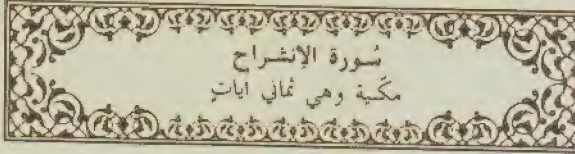 سورة الإنشراح
مكّية وهي ثماني ايات